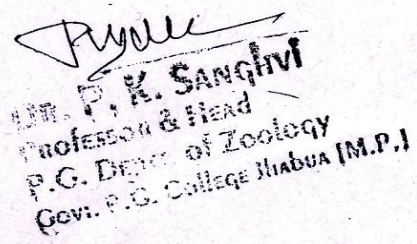 Dr. P. K. Sanghvi
Professor & Head
P.G. Deptt. of Zoology
Govt. P.G. College Jhabua [M.P.]